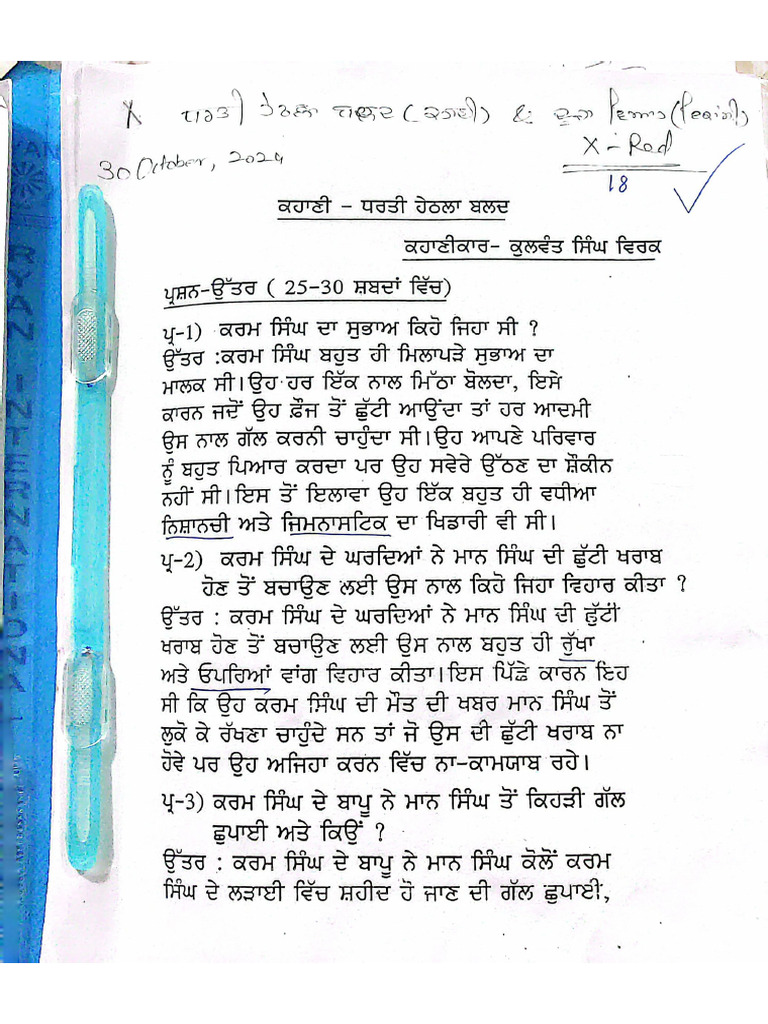 X ਧਰਤੀ ਹੇਠਲਾ ਬਲਦ (ਕਹਾਣੀ) &
30 October, 2024
X - Red
18
ਕਹਾਣੀ - ਧਰਤੀ ਹੇਠਲਾ ਬਲਦ
ਕਹਾਣੀਕਾਰ- ਕੁਲਵੰਤ ਸਿੰਘ ਵਿਰਕ
ਪ੍ਰਸ਼ਨ-ਉੱਤਰ ( 25-30 ਸ਼ਬਦਾਂ ਵਿੱਚ)
ਪ੍ਰ-1) ਕਰਮ ਸਿੰਘ ਦਾ ਸੁਭਾਅ ਕਿਹੋ ਜਿਹਾ ਸੀ ?
ਉੱਤਰ :ਕਰਮ ਸਿੰਘ ਬਹੁਤ ਹੀ ਮਿਲਾਪੜੇ ਸੁਭਾਅ ਦਾ
ਮਾਲਕ ਸੀ।ਉਹ ਹਰ ਇੱਕ ਨਾਲ ਮਿੱਠਾ ਬੋਲਦਾ, ਇਸੇ
ਕਾਰਨ ਜਦੋਂ ਉਹ ਫ਼ੌਜ ਤੋਂ ਛੁੱਟੀ ਆਉਂਦਾ ਤਾਂ ਹਰ ਆਦਮੀ
ਉਸ ਨਾਲ ਗੱਲ ਕਰਨੀ ਚਾਹੁੰਦਾ ਸੀ।ਉਹ ਆਪਣੇ ਪਰਿਵਾਰ
ਨੂੰ ਬਹੁਤ ਪਿਆਰ ਕਰਦਾ ਪਰ ਉਹ ਸਵੇਰੇ ਉੱਠਣ ਦਾ ਸ਼ੌਕੀਨ
ਨਹੀਂ ਸੀ।ਇਸ ਤੋਂ ਇਲਾਵਾ ਉਹ ਇੱਕ ਬਹੁਤ ਹੀ ਵਧੀਆ
ਨਿਸ਼ਾਨਚੀ ਅਤੇ ਜਿਮਨਾਸਟਿਕ ਦਾ ਖਿਡਾਰੀ ਵੀ ਸੀ।
ਪ੍ਰ-2) ਕਰਮ ਸਿੰਘ ਦੇ ਘਰਦਿਆਂ ਨੇ ਮਾਨ ਸਿੰਘ ਦੀ ਛੁੱਟੀ ਖਰਾਬ
ਹੋਣ ਤੋਂ ਬਚਾਉਣ ਲਈ ਉਸ ਨਾਲ ਕਿਹੋ ਜਿਹਾ ਵਿਹਾਰ ਕੀਤਾ ?
ਉੱਤਰ : ਕਰਮ ਸਿੰਘ ਦੇ ਘਰਦਿਆਂ ਨੇ ਮਾਨ ਸਿੰਘ ਦੀ ਛੁੱਟੀ
ਖਰਾਬ ਹੋਣ ਤੋਂ ਬਚਾਉਣ ਲਈ ਉਸ ਨਾਲ ਬਹੁਤ ਹੀ ਰੁੱਖਾ
ਅਤੇ ਓਪਰਿਆਂ ਵਾਂਗ ਵਿਹਾਰ ਕੀਤਾ।ਇਸ ਪਿੱਛੇ ਕਾਰਨ ਇਹ
ਸੀ ਕਿ ਉਹ ਕਰਮ ਸਿੰਘ ਦੀ ਮੌਤ ਦੀ ਖਬਰ ਮਾਨ ਸਿੰਘ ਤੋਂ
ਲੁਕੋ ਕੇ ਰੱਖਣਾ ਚਾਹੁੰਦੇ ਸਨ ਤਾਂ ਜੋ ਉਸ ਦੀ ਛੁੱਟੀ ਖਰਾਬ ਨਾ
ਹੋਵੇ ਪਰ ਉਹ ਅਜਿਹਾ ਕਰਨ ਵਿੱਚ ਨਾ-ਕਾਮਯਾਬ ਰਹੇ।
ਪ੍ਰ-3) ਕਰਮ ਸਿੰਘ ਦੇ ਬਾਪੂ ਨੇ ਮਾਨ ਸਿੰਘ ਤੋਂ ਕਿਹੜੀ ਗੱਲ
ਛੁਪਾਈ ਅਤੇ ਕਿਉਂ ?
ਉੱਤਰ : ਕਰਮ ਸਿੰਘ ਦੇ ਬਾਪੂ ਨੇ ਮਾਨ ਸਿੰਘ ਕੋਲੋਂ ਕਰਮ
ਸਿੰਘ ਦੇ ਲੜਾਈ ਵਿੱਚ ਸ਼ਹੀਦ ਹੋ ਜਾਣ ਦੀ ਗੱਲ ਛੁਪਾਈ,
RYAN INTERNATIONAL